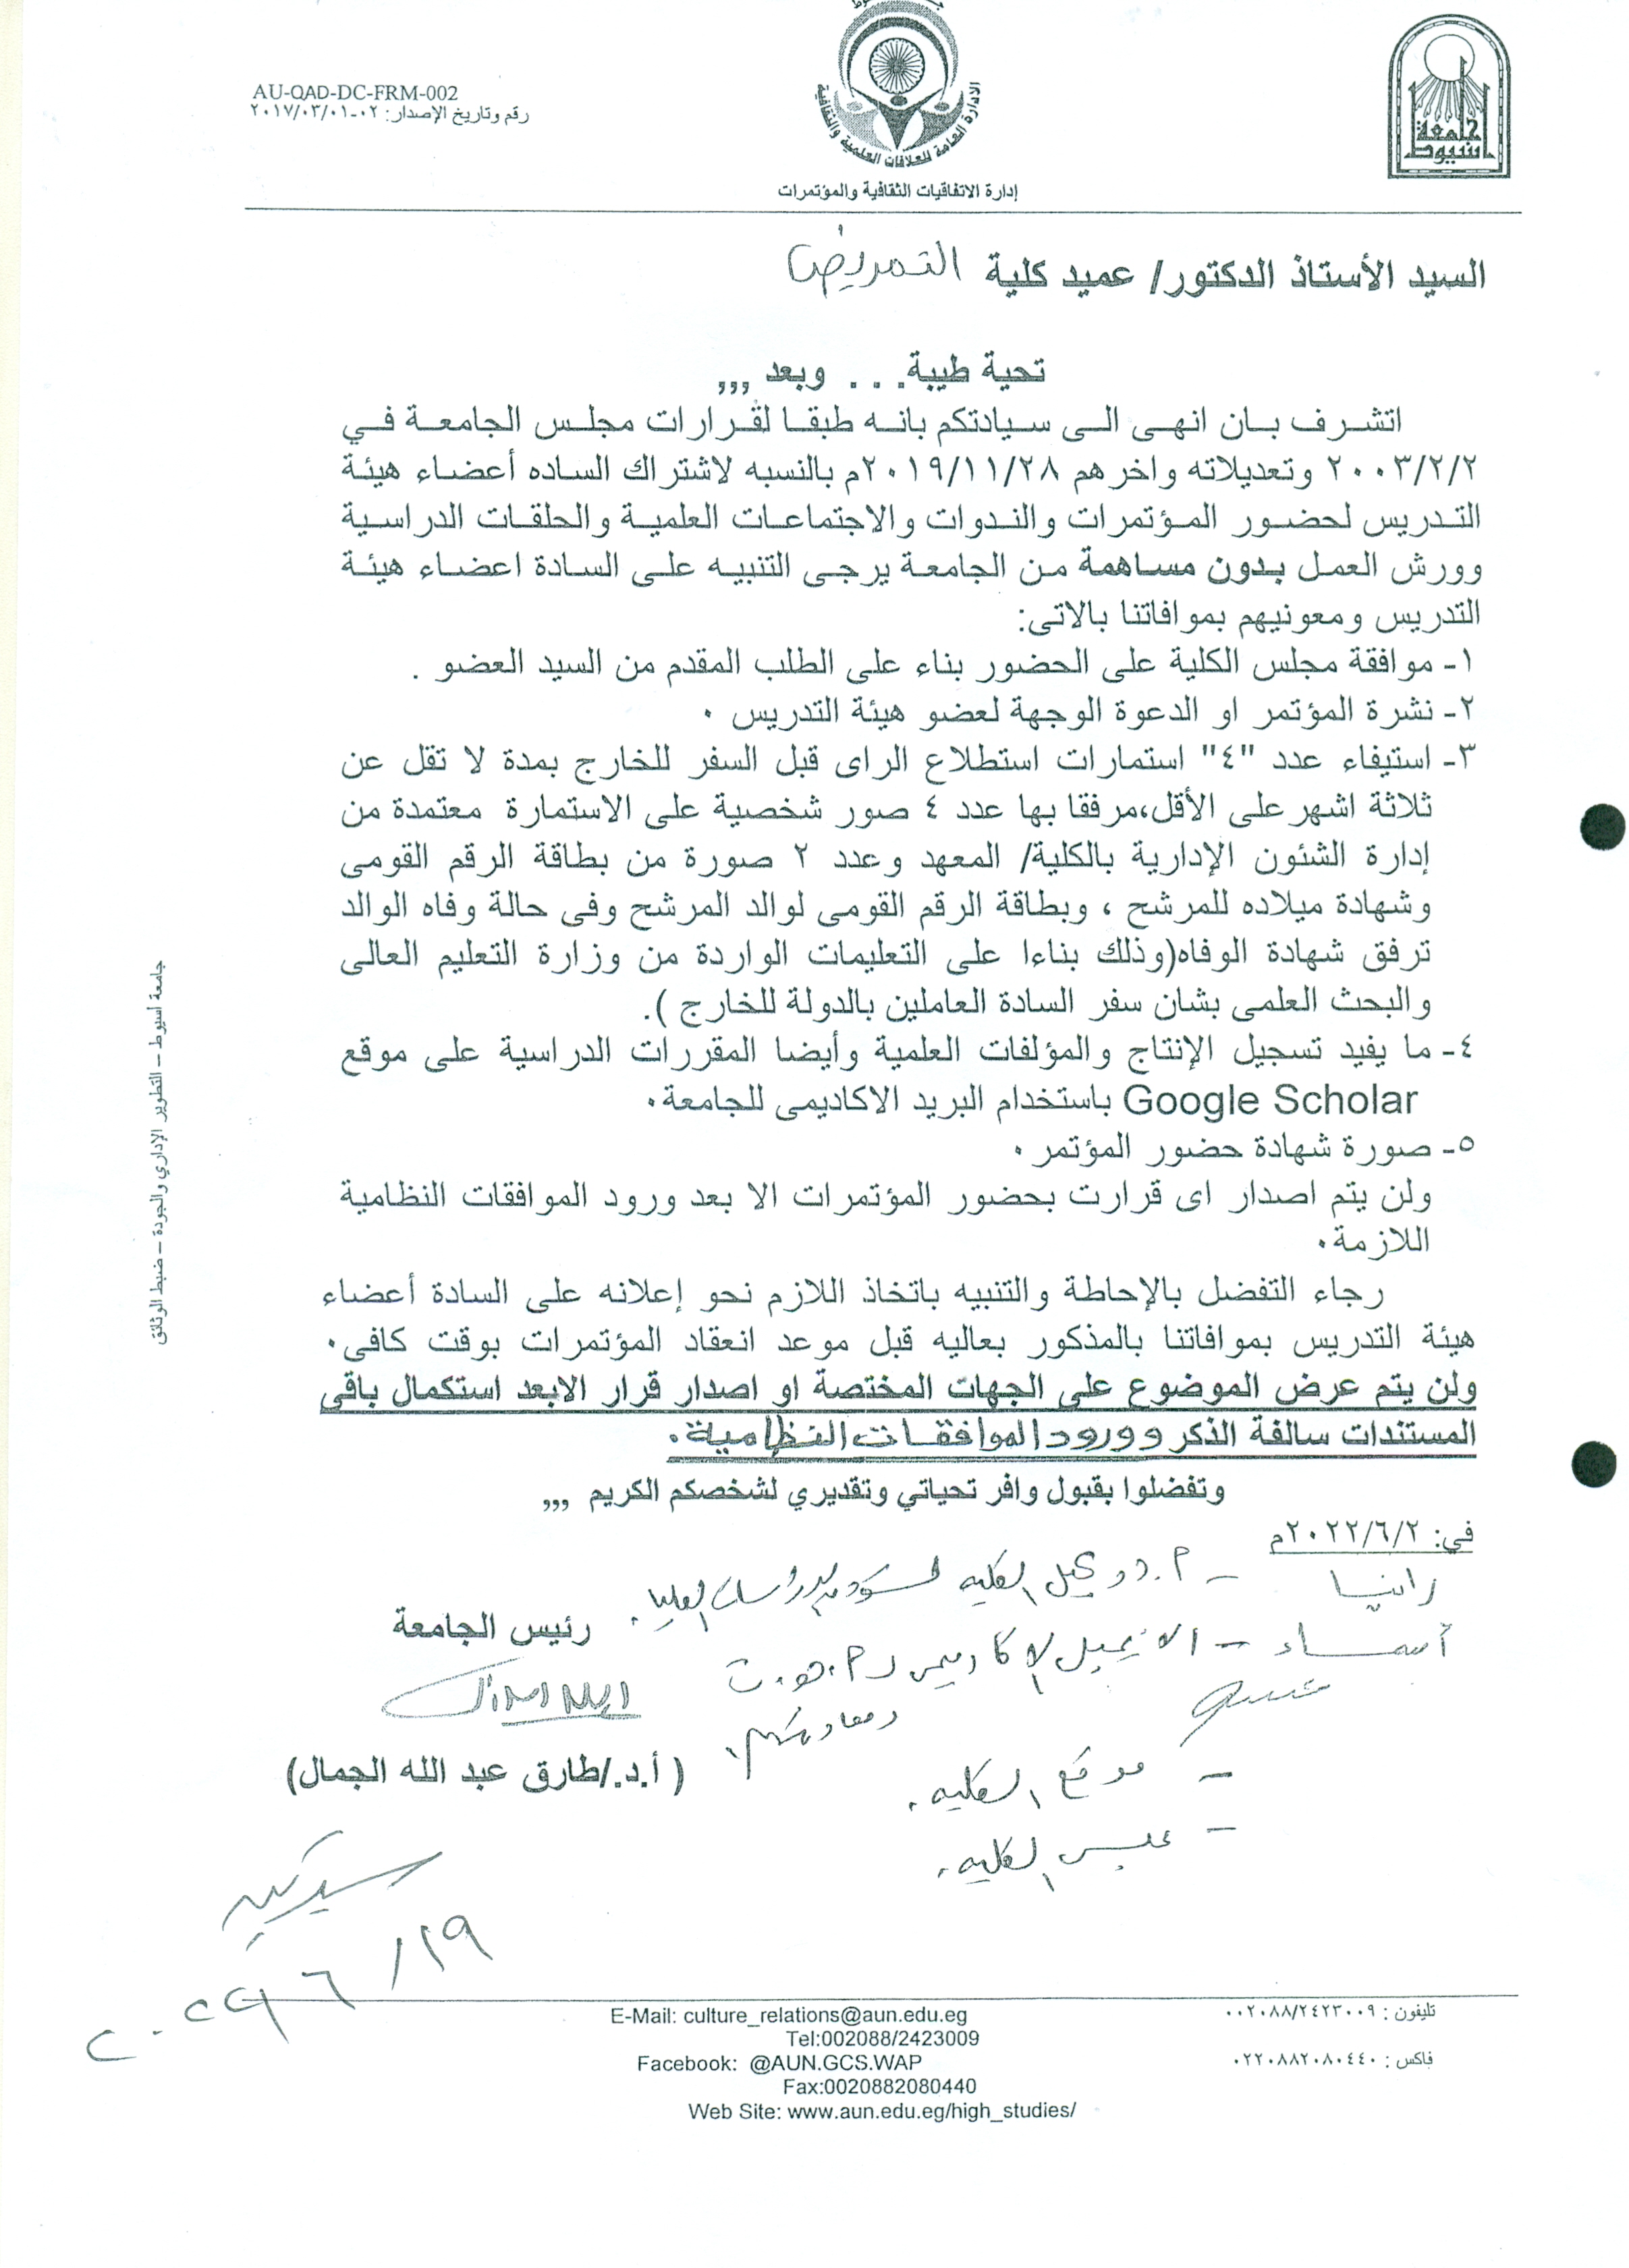 AU-QAD-DC-FRM-002
رقم وتاريخ الإصدار: ٠٢-٢٠١٧/٠٣/٠١
الادارة العامة للعلاقات العلمية والثقافية
جامعة اسيوط
إدارة الاتفاقيات الثقافية والمؤتمرات
السيد الأستاذ الدكتور/ عميد كلية التمريض
تحية طيبة. . . وبعد ,,,
اتشرف بان انهى الى سيادتكم بانه طبقا لقرارات مجلس الجامعة في
٢٠٠٣/٢/٢ وتعديلاته واخرهم ٢٠١٩/١١/٢٨م بالنسبه لاشتراك الساده أعضاء هيئة
التدريس لحضور المؤتمرات والندوات والاجتماعات العلمية والحلقات الدراسية
وورش العمل بدون مساهمة من الجامعة يرجى التنبيه على السادة اعضاء هيئة
التدريس ومعونيهم بموافاتنا بالاتى:
١- موافقة مجلس الكلية على الحضور بناء على الطلب المقدم من السيد العضو .
٢- نشرة المؤتمر او الدعوة الوجهة لعضو هيئة التدريس ٠
٣- استيفاء عدد "٤" استمارات استطلاع الراى قبل السفر للخارج بمدة لا تقل عن
ثلاثة اشهر على الأقل،مرفقا بها عدد ٤ صور شخصية على الاستمارة معتمدة من
إدارة الشئون الإدارية بالكلية/ المعهد وعدد ٢ صورة من بطاقة الرقم القومى
وشهادة ميلاده للمرشح ، وبطاقة الرقم القومى لوالد المرشح وفى حالة وفاه الوالد
ترفق شهادة الوفاه(وذلك بناءا على التعليمات الواردة من وزارة التعليم العالى
والبحث العلمى بشان سفر السادة العاملين بالدولة للخارج ).
٤- ما يفيد تسجيل الإنتاج والمؤلفات العلمية وأيضا المقررات الدراسية على موقع
Google Scholar باستخدام البريد الاكاديمى للجامعة٠
٥- صورة شهادة حضور المؤتمر ٠
ولن يتم اصدار اى قرارت بحضور المؤتمرات الا بعد ورود الموافقات النظامية
اللازمة٠
رجاء التفضل بالإحاطة والتنبيه باتخاذ اللازم نحو إعلانه على السادة أعضاء
هيئة التدريس بموافاتنا بالمذكور بعاليه قبل موعد انعقاد المؤتمرات بوقت كافى٠
ولن يتم عرض الموضوع على الجهات المختصة او اصدار قرار الابعد استكمال باقى
المستندات سالفة الذكر وورود الموافقات النظامية٠
وتفضلوا بقبول وافر تحياتي وتقديري لشخصكم الكريم ,,,
في: ٢٠٢٢/٦/٢م
رانيا - أ.د وكيل الكليه لشئون الدراسات العليا.
أسماء - الايميل الاكاديمى أ.هـ.ت
ومعاونيهم.
رئيس الجامعة
( أ.د./طارق عبد الله الجمال)
- موقع الكليه.
- مجلس الكليه.
٢٠٢٢/٦/١٩
جامعة اسيوط – التطوير الإداري والجودة – ضبط الوثائق
E-Mail: culture_relations@aun.edu.eg
تليفون : ٠٠٢٠٨٨/٢٤٢٣٠٠٩
Tel:002088/2423009
Facebook: @AUN.GCS.WAP
فاكس : ٠٢٢٠٨٨٢٠٨٠٤٤٠
Fax:0020882080440
Web Site: www.aun.edu.eg/high_studies/